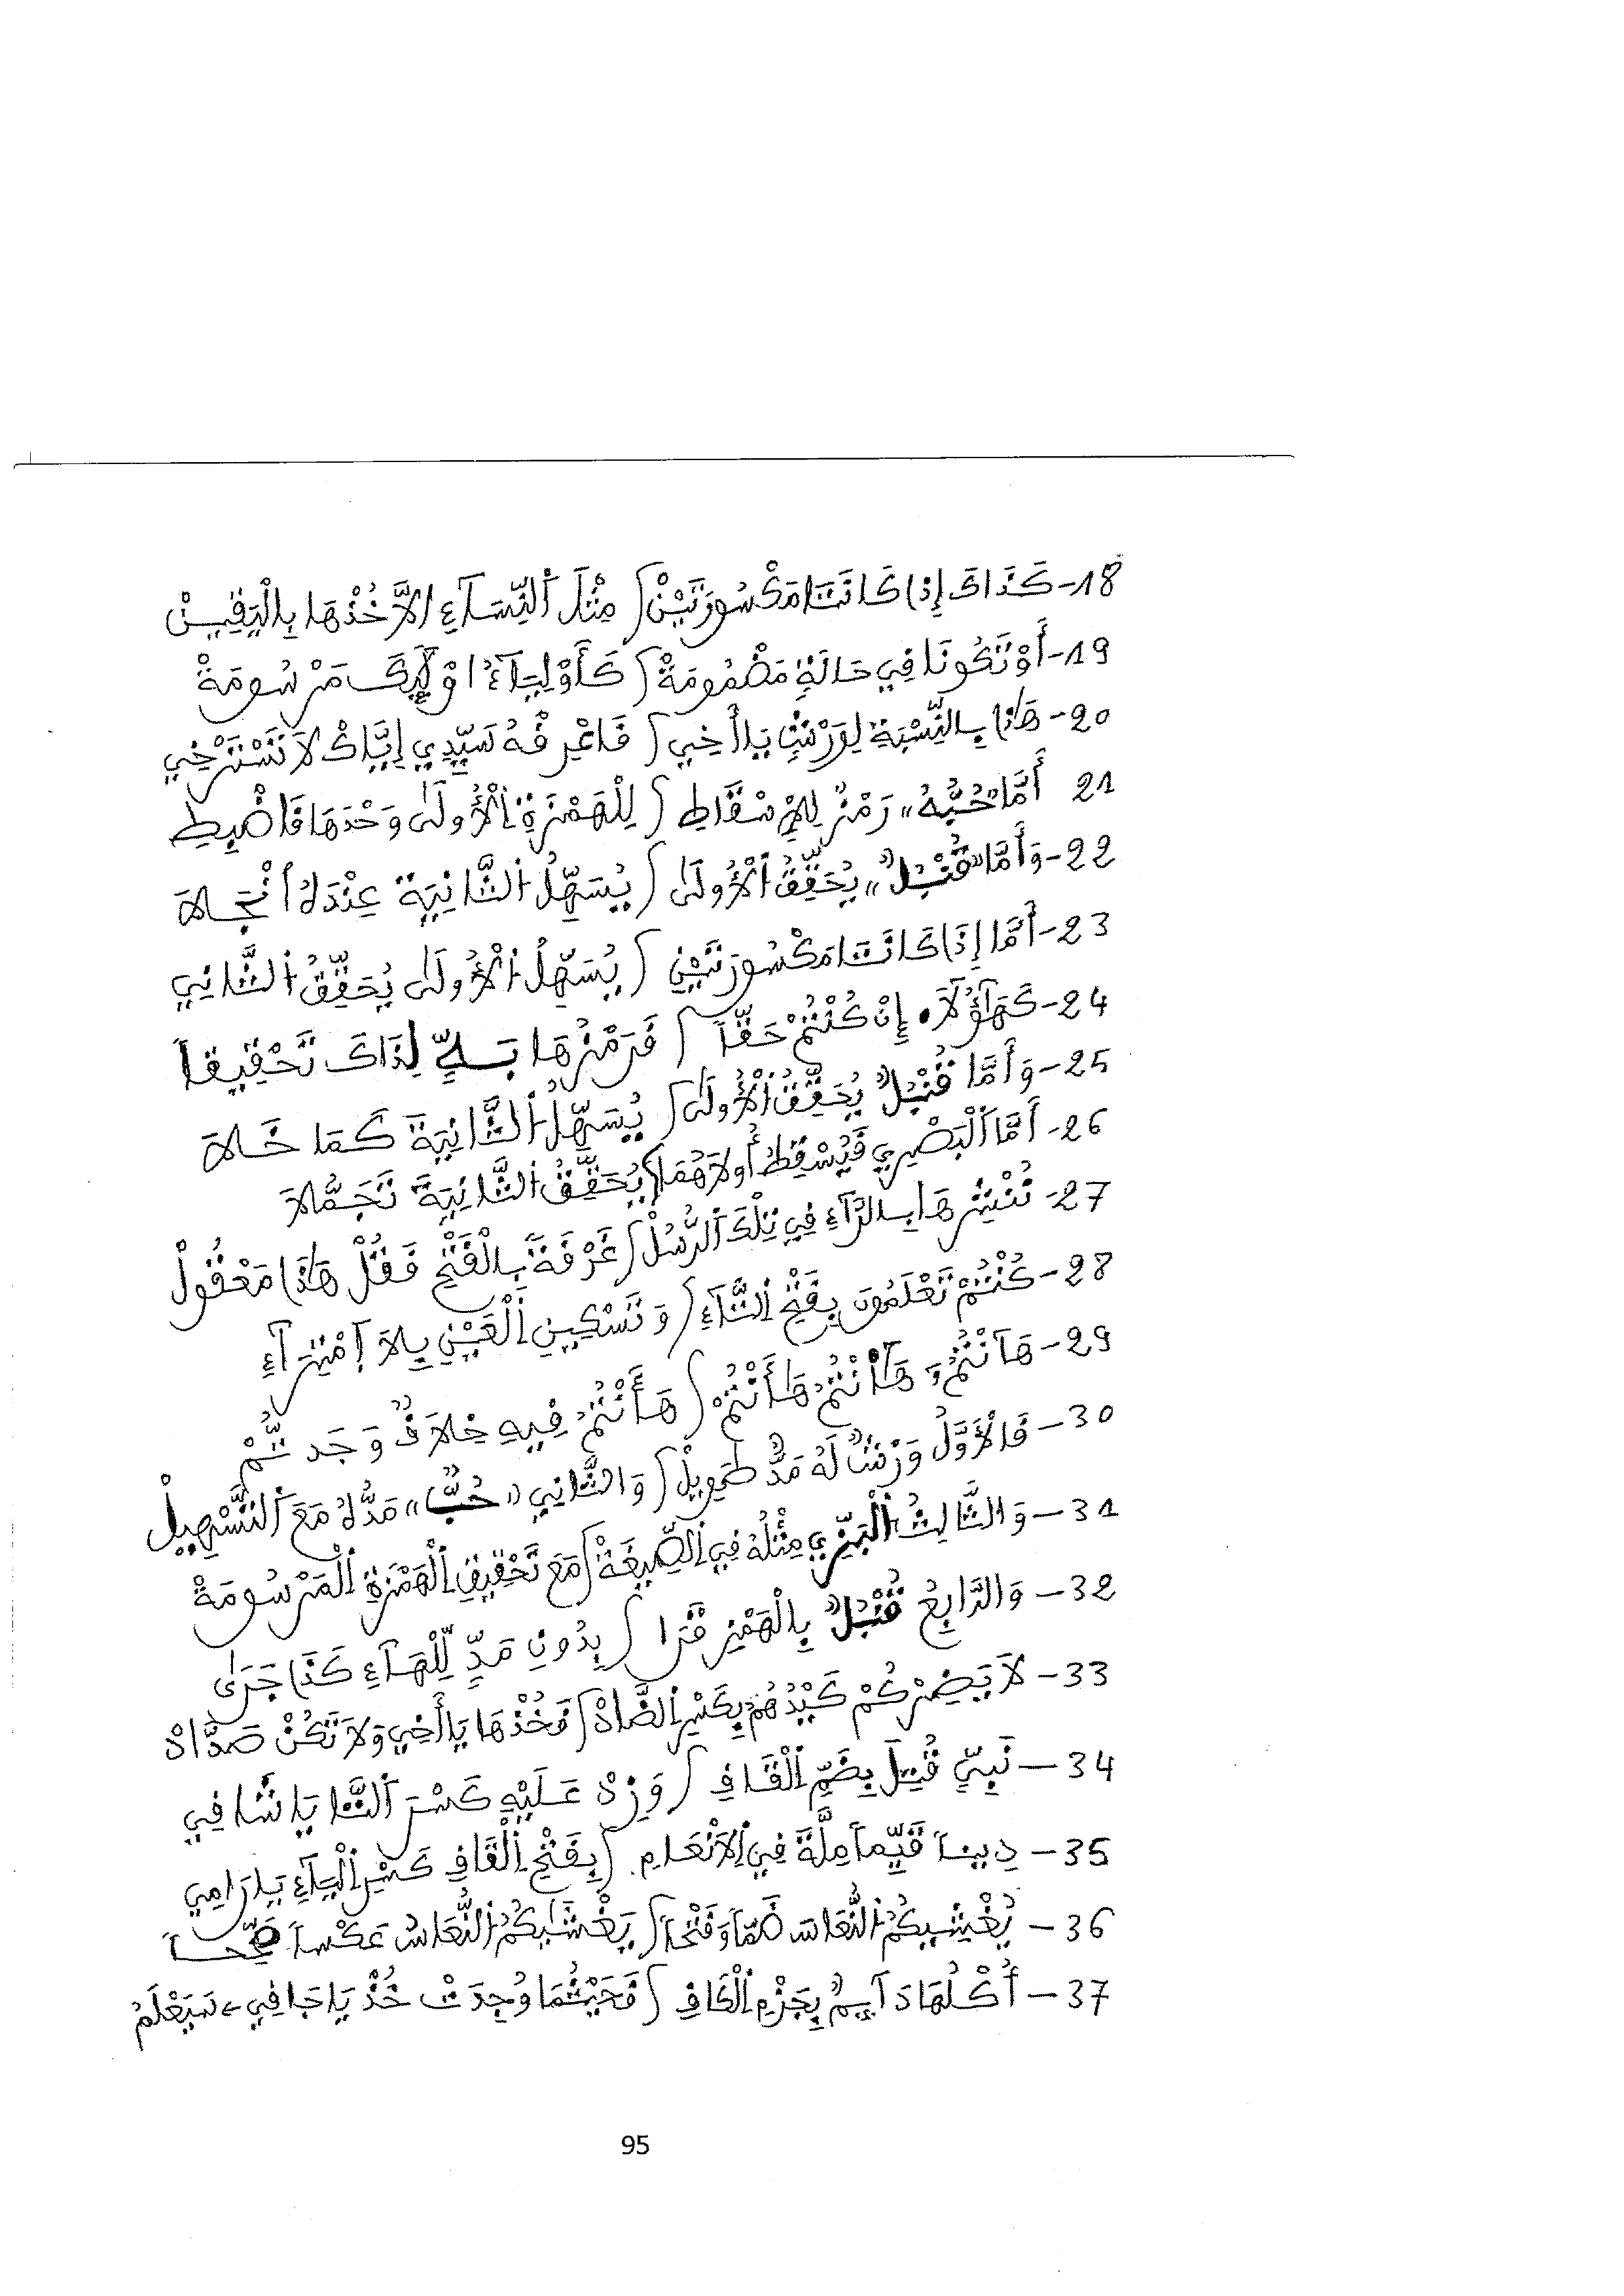 18- كَذَاكَ إِذَا كَانَتَا مَكْسُورَتَيْنْ / مِثْلَ اَلنِّسَآءِ الاَّ خُذْهَا بِالْيَقِينْ
19- أَوْ تَكُونَا فِي حَالَةٍ مَضْمُومَةْ / كَأَوْلِيَآءُ اوْلَٰٓئِكَ مَرْسُومَةْ
20- هَٰذَا بِالنِّسْبَةِ لِوَرْشٍ يَا أَخِي / فَاعْرِفْهُ سَيِّدِي إِيَّاكْ لاَ تَسْتَرْخِي
21 أَمَّا "حُبُّهُ" رَمْزٌ لِلإِسْقَاطِ / لِلْهَمْزَةِ اِلْأُولَىٰ وَحْدَهَا فَاضْبِطِ
22- وَأَمَّا "قُنْبُلٌ" يُحَقِّقُ اُلْأُولَىٰ / يُسَهِّلُ اُلثَّانِيَةَ عِنْدَهُ اَنْجَلاَ
23- أَمَّا إِذَا كَانَتَا مَكْسُورَتَيْنِ / يُسَهِّلُ اُلْأُولَىٰ يُحَقِّقُ اُلثَّانِي
24- كَهَٰٓؤُلَآءِ إِنْ كُنْتُمْ حَقّاً / فَرَمْزُهَا بَلِيٍّ لِذَاكَ تَحْقِيقاً
25- وَأَمَّا قُنْبُلٌ يُحَقِّقُ اُلْأُولَىٰ / يُسَهِّلُ اُلثَّانِيَةَ كَمَا خَلاَ
26- أَمَّا اَلْبَصْرِي فَيُسْقِطُ أُولاَهُمَا / يُحَقِّقُ اُلثَّانِيَةَ تَجَمُّلاَ
27- نُنْشِرُهَا بِالرَّآءِ فِي تِلْكَ اَلرُّسُلْ / غَرْفَةً بِالْفَتْحِ فَقُلْ هَٰذَا مَعْقُولْ
28- كُنْتُمْ تَعْلَمُونَ بِفَتْحِ اِلتَّآءِ / وَتَسْكِينِ اِلْعَيْنِ بِلاَ اِمْتِرَآءِ
29- هَآنْتُمْ، هَٰانْتُمْ هَٰأَنْتُمْ / هَأَنْتُمْ فِيهِ خِلاَفٌ وَجَدْتُّمْ
30- فَالْأَوَّلُ وَرْشٌ لَهُ مَدٌّ طَوِيلْ / وَالثَّانِي "حُبٌّ" مَدُّهُ مَعَ اَلتَّسْهِيلْ
31- وَالثَّالِثُ اُلْبَزِّي مِثْلُهُ فِي اِلصِّيغَةْ / مَعَ تَحْقِيقِ اِلْهَمْزَةِ اِلْمَرْسُومَةْ
32- وَالرَّابِعُ قُنْبُلٌ بِالْهَمْزِ قَرَا / بِدُونِ مَدٍّ لِّلْهَآءِ كَذَا جَرَىٰ
33- لاَ يَضِرْكُمْ كَيْدُهُمْ بِكَسْرِ اِلضَّادْ / فَخُذْهَا يَا أَخِي وَلاَ تَكُنْ صَدَّادْ
34- نَبِيّ قُتِلَ بِضَمِّ اِلْقَافِ / وَزِدْ عَلَيْهِ كَسْرَ اَلتَّا يَا شَافِي
35- دِيناً قَيِّماً مِلَّةً فِي اِلاَنْعَامِ / بِفَتْحِ اِلْقَافِ كَسْرِ اِلْيَآءِ يَا رَامِي
36- يُغْشِيكُمُ اُلنُّعَاسَ ضَمّاً وَفَتْحاً / يَغْشَاكُمُ اُلنُّعَاسُ عَكْساً صَحَّ
37- أُكْلُهَا دَآئِمٌ بِجَزْمِ اِلْكَافِ / فَحَيْثُمَا وُجِدَتْ خُذْ يَا جَافِي، سَيَعْلَمُ
95